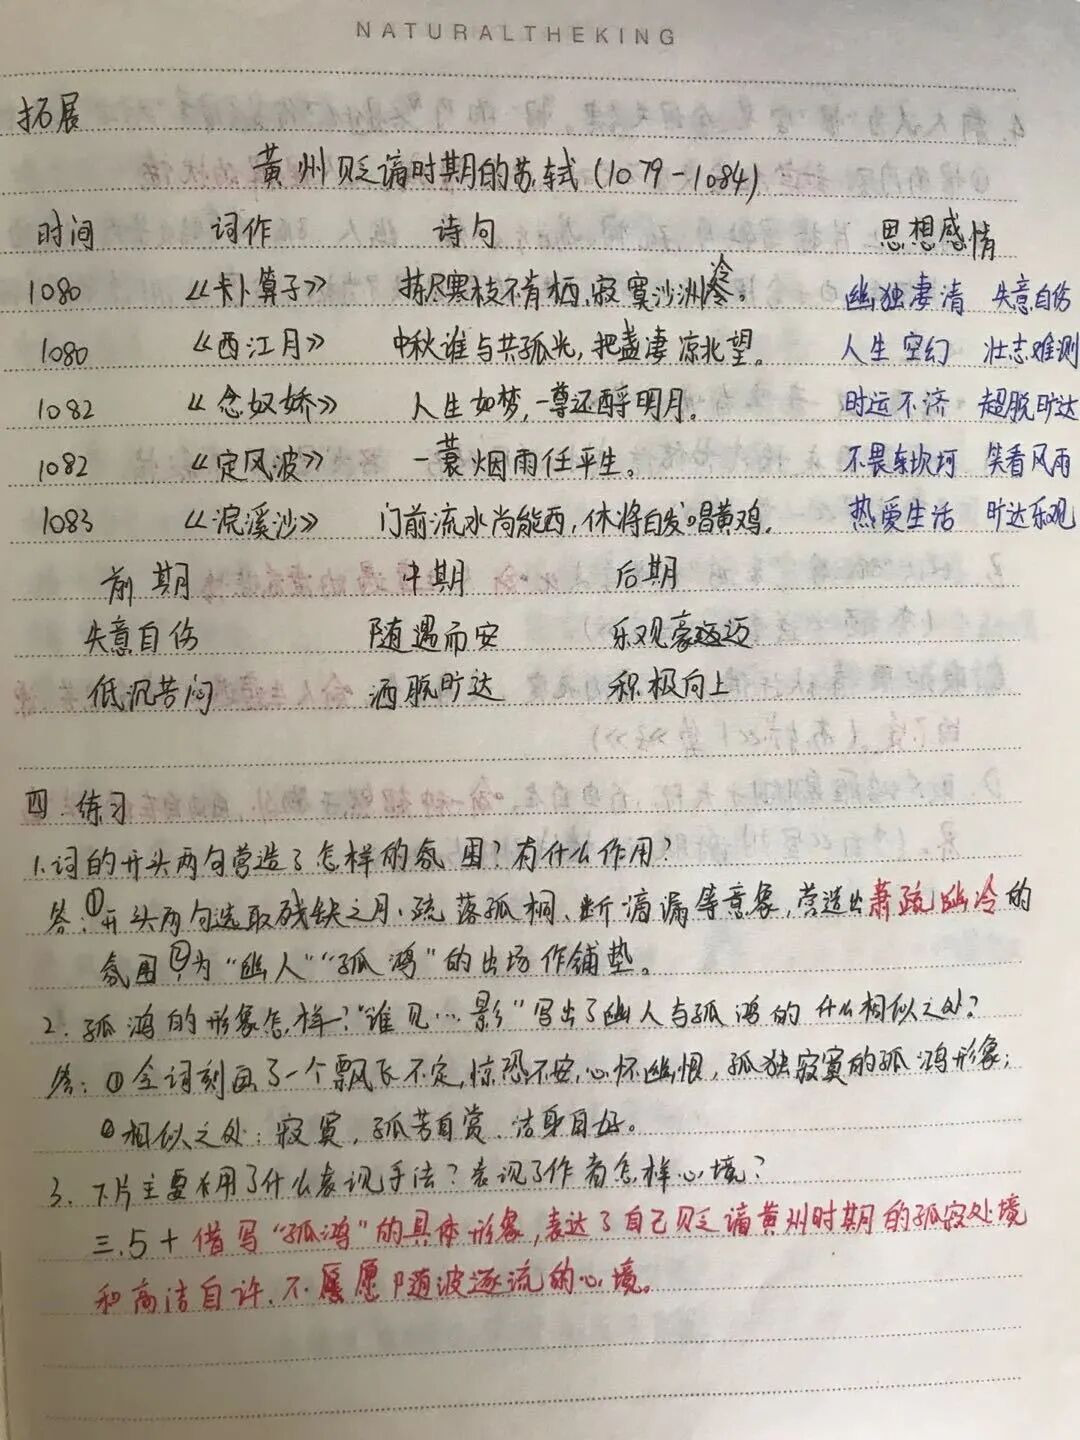 NATURALTHEKING
拓展
黄州贬谪时期的苏轼(1079-1084)
时间 词作 诗句 思想感情
1080 《卜算子》 拣尽寒枝不肯栖,寂寞沙洲冷。 幽独凄清 失意自伤
1080 《西江月》 中秋谁与共孤光,把盏凄凉北望。 人生空幻 壮志难测
1082 《念奴娇》 人生如梦,一尊还酹明月。 时运不济 超脱旷达
1082 《定风波》 一蓑烟雨任平生。 不畏坎坷 笑看风雨
1083 《浣溪沙》 门前流水尚能西,休将白发唱黄鸡。 热爱生活 旷达乐观
前期 中期 后期
失意自伤 随遇而安 乐观豪迈
低沉苦闷 洒脱旷达 积极向上
四.练习
1.词的开头两句营造了怎样的氛围?有什么作用?
答:①开头两句选取残缺之月、疏落孤桐、断滴漏等意象,营造出萧疏幽冷的
氛围②为“幽人”“孤鸿”的出场作铺垫。
2.孤鸿的形象怎样?“谁见…影”写出了幽人与孤鸿的什么相似之处?
答:①全词刻画了一个飘飞不定,惊恐不安,心怀幽恨,孤独寂寞的孤鸿形象;
②相似之处:寂寞,孤芳自赏、洁身自好。
3.下片主要采用了什么表现手法?表现了作者怎样心境?
三.5+借写“孤鸿”的具体形象,表达了自己贬谪黄州时期的孤寂处境
和高洁自许、不愿随波逐流的心境。